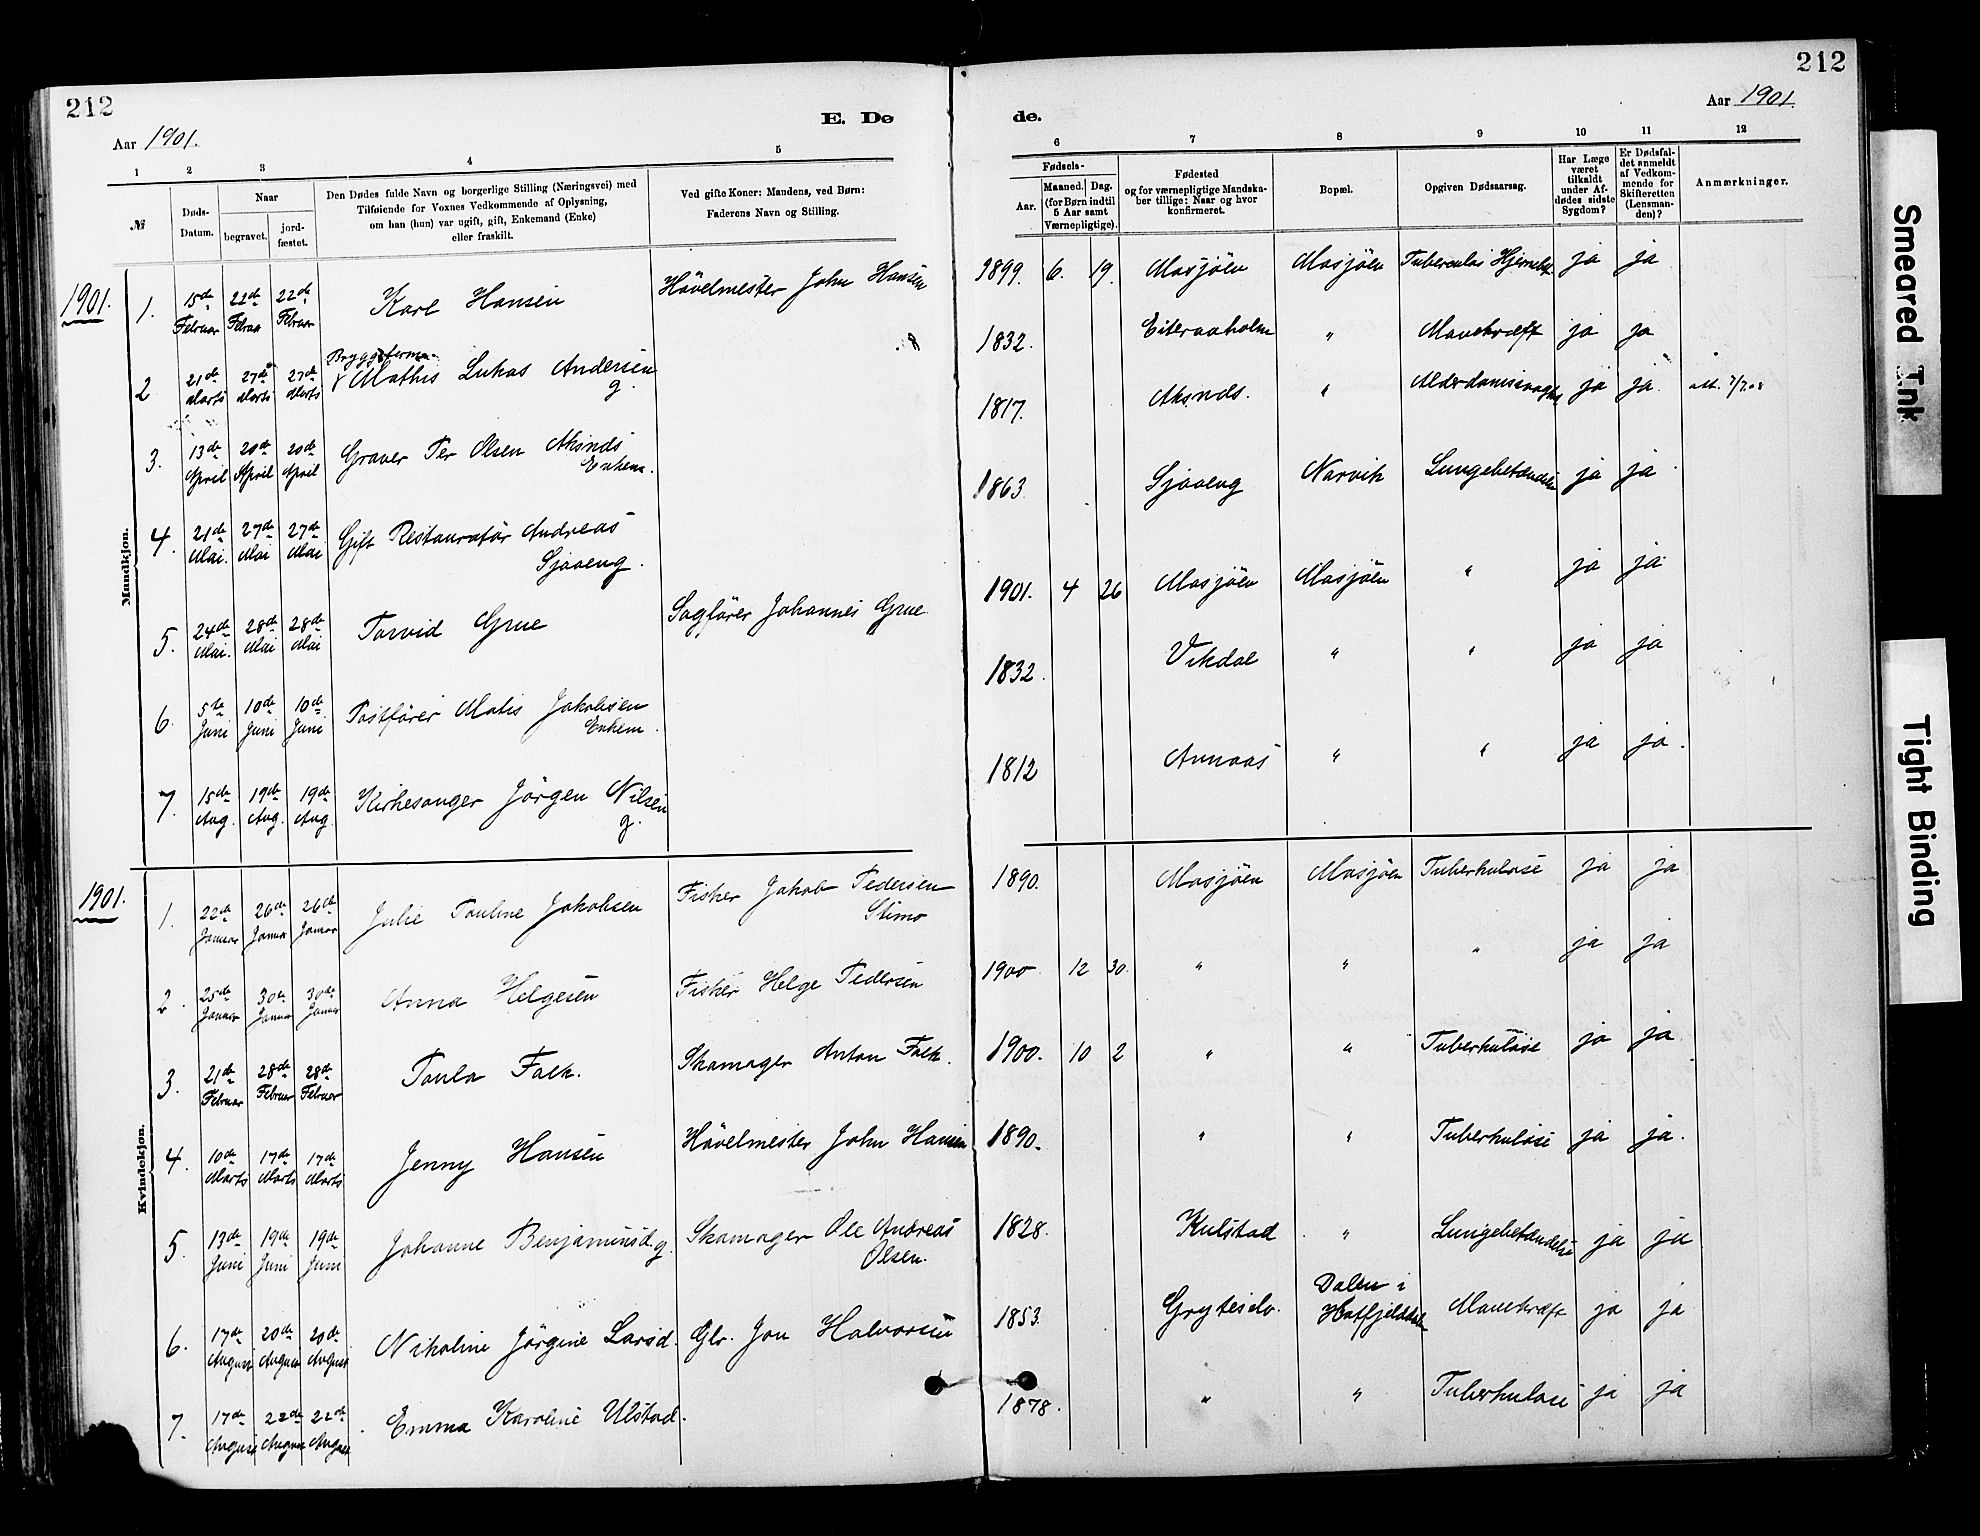 212
Aar 1901.
E. Dø
1 2 3 4 5
№
Døds-Datum.
Naar
begravet.
jord-fæstet.
Den Dødes fulde Navn og borgerlige Stilling (Næringsvei) med
Tilføiende for Voxnes Vedkommende af Oplysning,
om han (hun) var ugift, gift, Enkemand (Enke)
eller fraskilt.
Ved gifte Koner: Mandens, ved Børn:
Faderens Navn og Stilling.
Mandkjøn.
1901.
1. 15de Februar 22de Februar 22de Februar Karl Hansen Hövelmester John Hansen
2 21de Marts 27de Marts 27de Marts Mathis Lukas Andersen g.
3. 13de April 20de April 20de April Graver Per Olsen
Enkem.
4. 21de Mai. 27de Mai 27de Mai Gift Restauratör Andreas
Sjaaeng.
5. 24de Mai. 28de Mai 28de Mai Torvid Grue Sagförer Johannes Grue
6. 5te Juni 10de Juni 10de Juni Postförer Matis Jakobsen
Enkem.
7. 15de Aug. 19de Aug. 19de Aug. Kirkesanger Jörgen Nilsen
g.
Kvindekjøn.
1901.
1. 22de Januar 26de Januar 26de Januar Julie Pauline Jakobsen Fisker Jakob Pedersen
Stimo
2. 25de Januar 30de Januar 30de Januar Anna Helgesen Fisker Helge Pedersen
3. 21de Februar 28de Februar 28de Februar Paula Falk. Skomager Anton Falk.
4. 10de Marts 17de Marts 17de Marts Jenny Hansen Hövelmester John Hansen
5. 13de Juni 19de Juni 19de Juni Johanne Benjaminsd. g. Skomager Ole Andreas
Olsen.
6. 17de August 20de August 20de August Nikoline Jörgine Larsd. Gbr. Jon Halvorsen
7. 17de August 22de August 22de August Emma Karoline Ulstad.
212
Aar 1901.
de.
6 7 8 9 10 11 12
Fødsels-
Aar.
Maaned. Dag.
(for Børn indtil
5 Aar samt
Værnepligtige).
Fødested
og for værnepligtige Mandska-
ber tillige: Naar og hvor
konfirmeret.
Bopæl.
Opgiven Dødsaarsag.
Har Læge
været
tilkaldt
under Af-
dødes sidste
Sygdom?
Er Dødsfal-
det anmeldt
af Vedkom-
mende for
Skifteretten
(Lensman-
den)?
Anmærkninger.
1899. 6. 19. Mosjöen Mosjöen Tuberculos ja ja
1832. Eiteraaholm " Mavekræft ja ja
1817. " Alderdomssvaghed ja ja.
1863. Sjaaeng Narvik Lungebetændelse ja ja
1901. 4 26 Mosjöen Mosjöen " ja ja
1832. Vikdal " " ja ja
1812 " " ja ja.
1890. Mosjöen Mosjöen Tuberkulose ja ja
1900 12 30. " " " ja ja
1900. 10 2 " " Tuberkulose ja ja
1890. " " Tuberkulose ja ja.
1828. Kulstad " Lungebetændelse ja ja
1853. Gryteselv. Dalen i
Hatfjelddalen Mavekræft ja ja
1878. " " Tuberkulose ja ja
Smeared Ink
Tight Binding